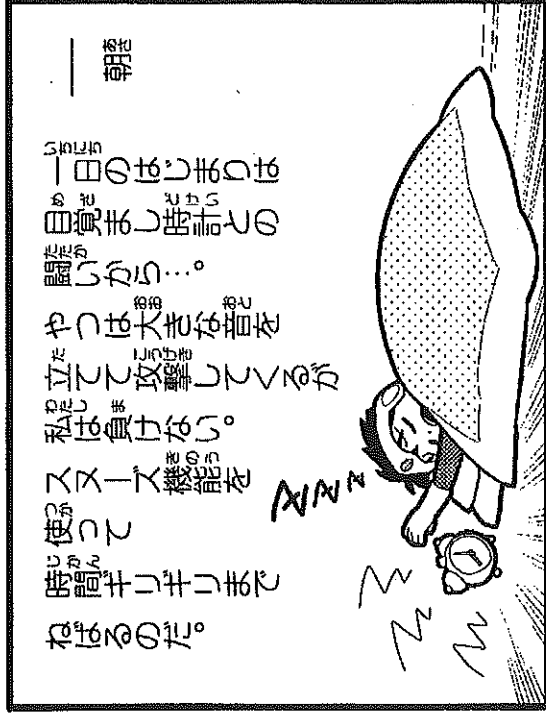 ―― 朝
一日のはじまりは
目覚まし時計との
闘いから…。
やつは大きな音を
立てて攻撃してくるが
私は負けない。
スヌーズ機能を
使って
時間ギリギリまで
ねばるのだ。
zzzz